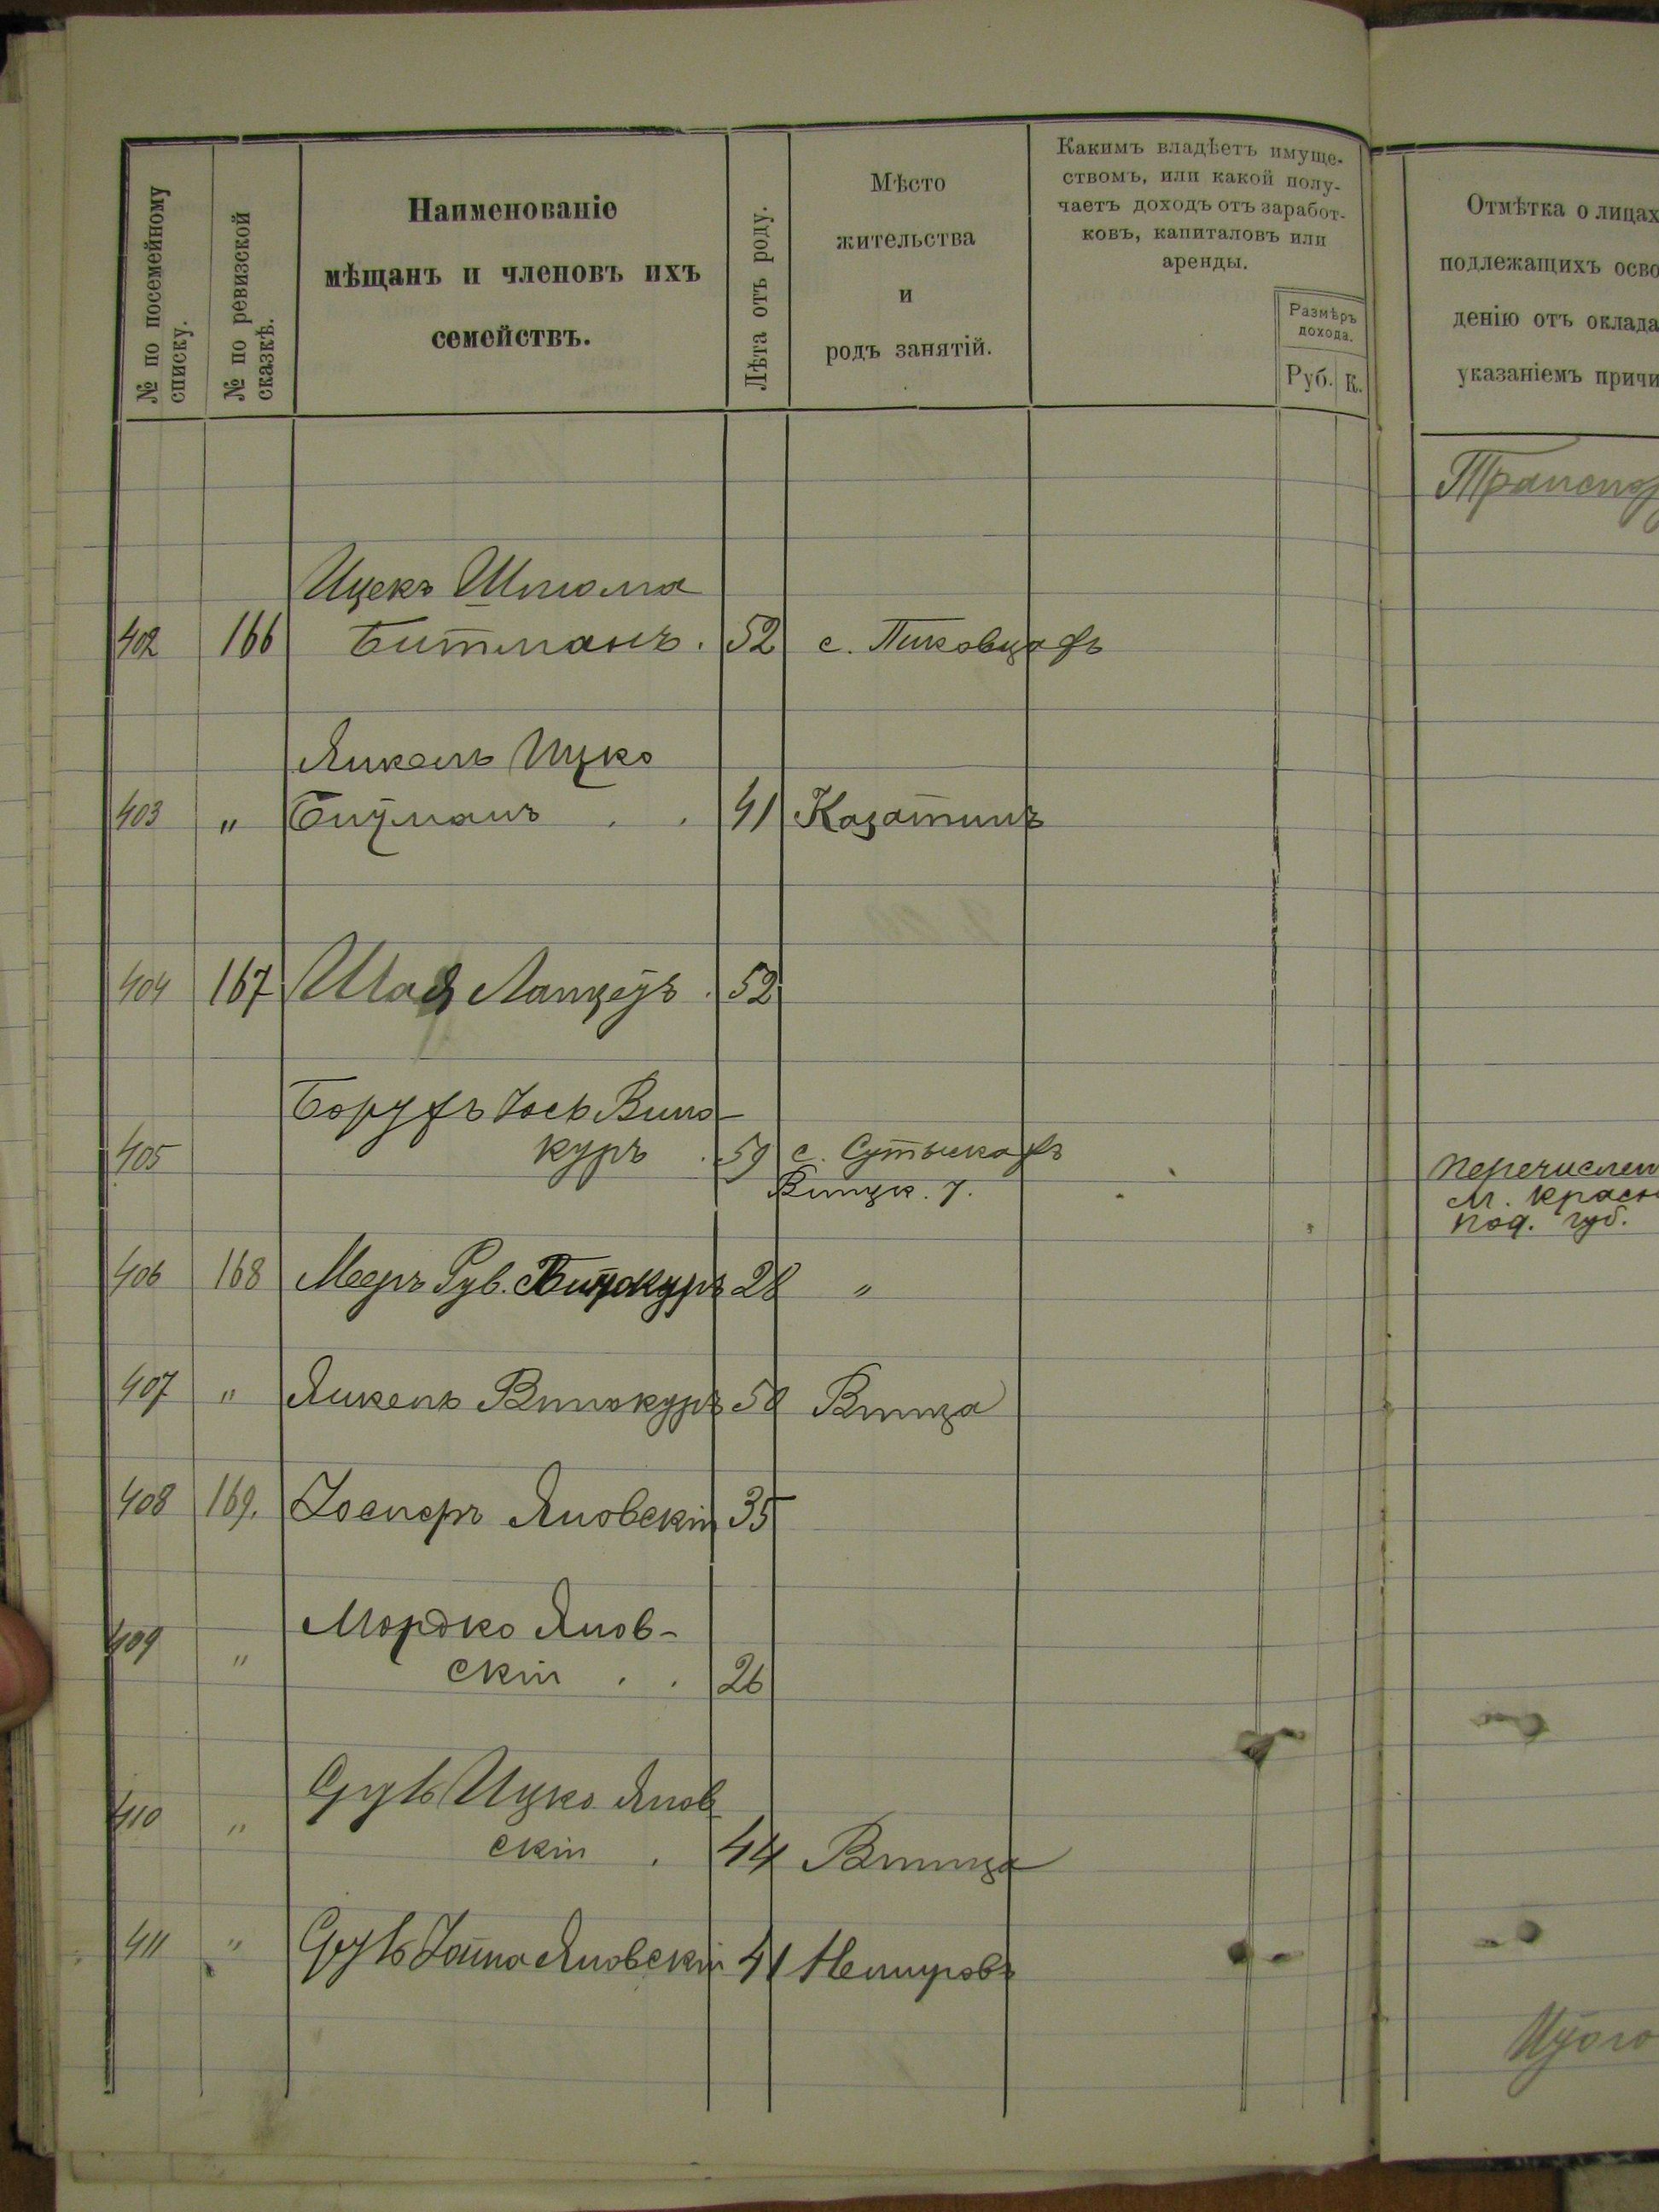 № по посемейному
списку.
№ по ревизской
сказкѣ.
Наименованіе
мѣщанъ и членовъ ихъ
семействъ.
Лѣта отъ роду.
Мѣсто
жительства
и
родъ занятій.
Какимъ владѣетъ имуще-
ствомъ, или какой полу-
чаетъ доходъ отъ заработ-
ковъ, капиталовъ или
аренды.
Размѣръ
дохода.
Руб. К.
Отмѣтка о лицах
подлежащихъ осво
денію отъ оклада
указаніемъ причи
Транспор
Ицекъ Шлиома
402 166 Битманъ. 52 с. Пиковцахъ
Янкель Ицко
403 " Битманъ . . 41 Казатинъ
404 167 Шая Ланцетъ . 52
Борухъ Іось Вино-
405 куръ . 59 с. Сутыскахъ
Винцк. у.
перечислен
м. Красн
под. губ.
406 168 Мееръ Рув. Винокуръ 28 "
407 " Янкель Винокуръ 58 Вннца
408 169. Іосперъ Яновскій 35
409 " Мордко Янов-
скій . . 26
410 " Сруль Ицко Янов
скій . 44 Вннца
411 " Сруль Іойна Яновскій 41 Немировъ
Итого